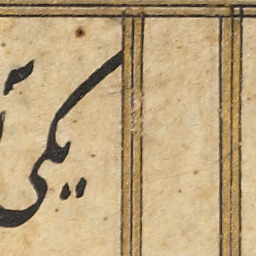 یکی